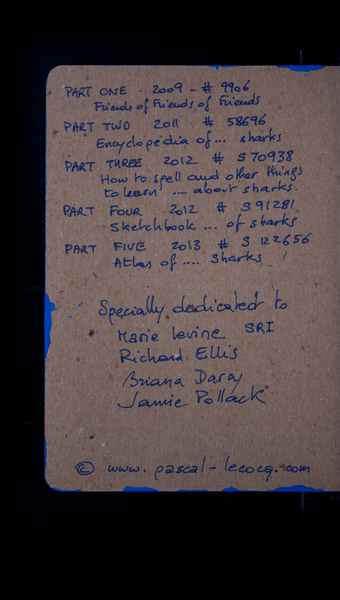 PART ONE . 2009 - # 9906
Friends of Friends of Friends
PART TWO 2011 # 58696
Encyclopedia of ... sharks
PART THREE 2012 # S 70938
How to spell and other things
to learn .... about sharks.
PART FOUR 2012 # S 91281
Sketchbook ... of sharks
PART FIVE 2013 # S 122656
Atlas of .... sharks
Specially dedicated to
Marie Levine SRI
Richard Ellis
Briana Daray
Jamie Pollack
© www.pascal-lecocq.com